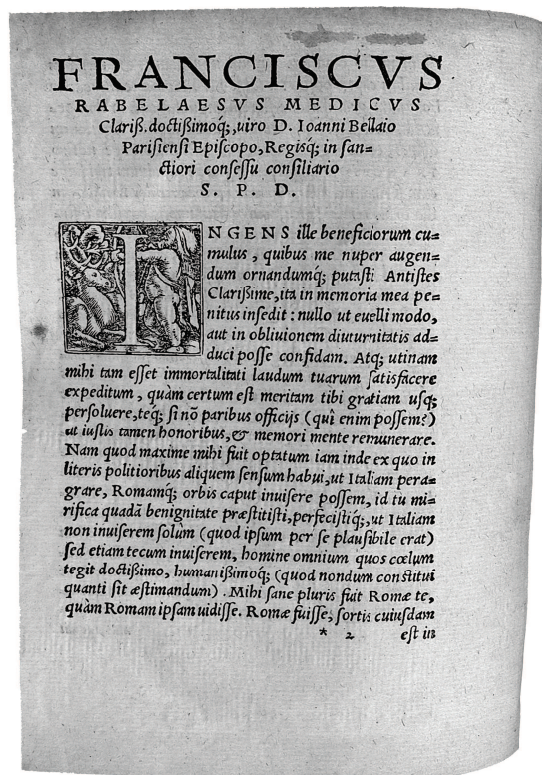 FRANCISCVS
RABELAESVS MEDICVS
Clariß.doctißimoq́;,uiro D. Ioanni Bellaio
Parisiensi Episcopo, Regisq́; in san=
ctiori consessu consiliario
S. P. D.
INGENS ille beneficiorum cu=
mulus, quibus me nuper augen=
dum ornandumq́; putasti Antistes
Clarißime, ita in memoria mea pe=
nitus insedit: nullo ut euelli modo,
aut in obliuionem diuturnitatis ad=
duci posse confidam. Atq; utinam
mihi tam esset immortalitati laudum tuarum satisfacere
expeditum, quàm certum est meritam tibi gratiam usq;
persoluere, teq́; si nõ paribus officijs (quî enim possem?)
ut iustis tamen honoribus, & memori mente remunerare.
Nam quod maxime mihi fuit optatum iam inde ex quo in
literis politioribus aliquem sensum habui, ut Italiam pera=
grare, Romamq́; orbis caput inuisere possem, id tu mi=
rifica quadã benignitate præstitisti, perfecistiq́;, ut Italiam
non inuiserem solùm (quod ipsum per se plausibile erat)
sed etiam tecum inuiserem, homine omnium quos cœlum
tegit doctißimo, humanißimoq́; (quod nondum constitui
quanti sit æstimandum). Mihi sane pluris fuit Romæ te,
quàm Romam ipsam uidisse. Romæ fuisse, sortis cuiusdam
* 2 est in